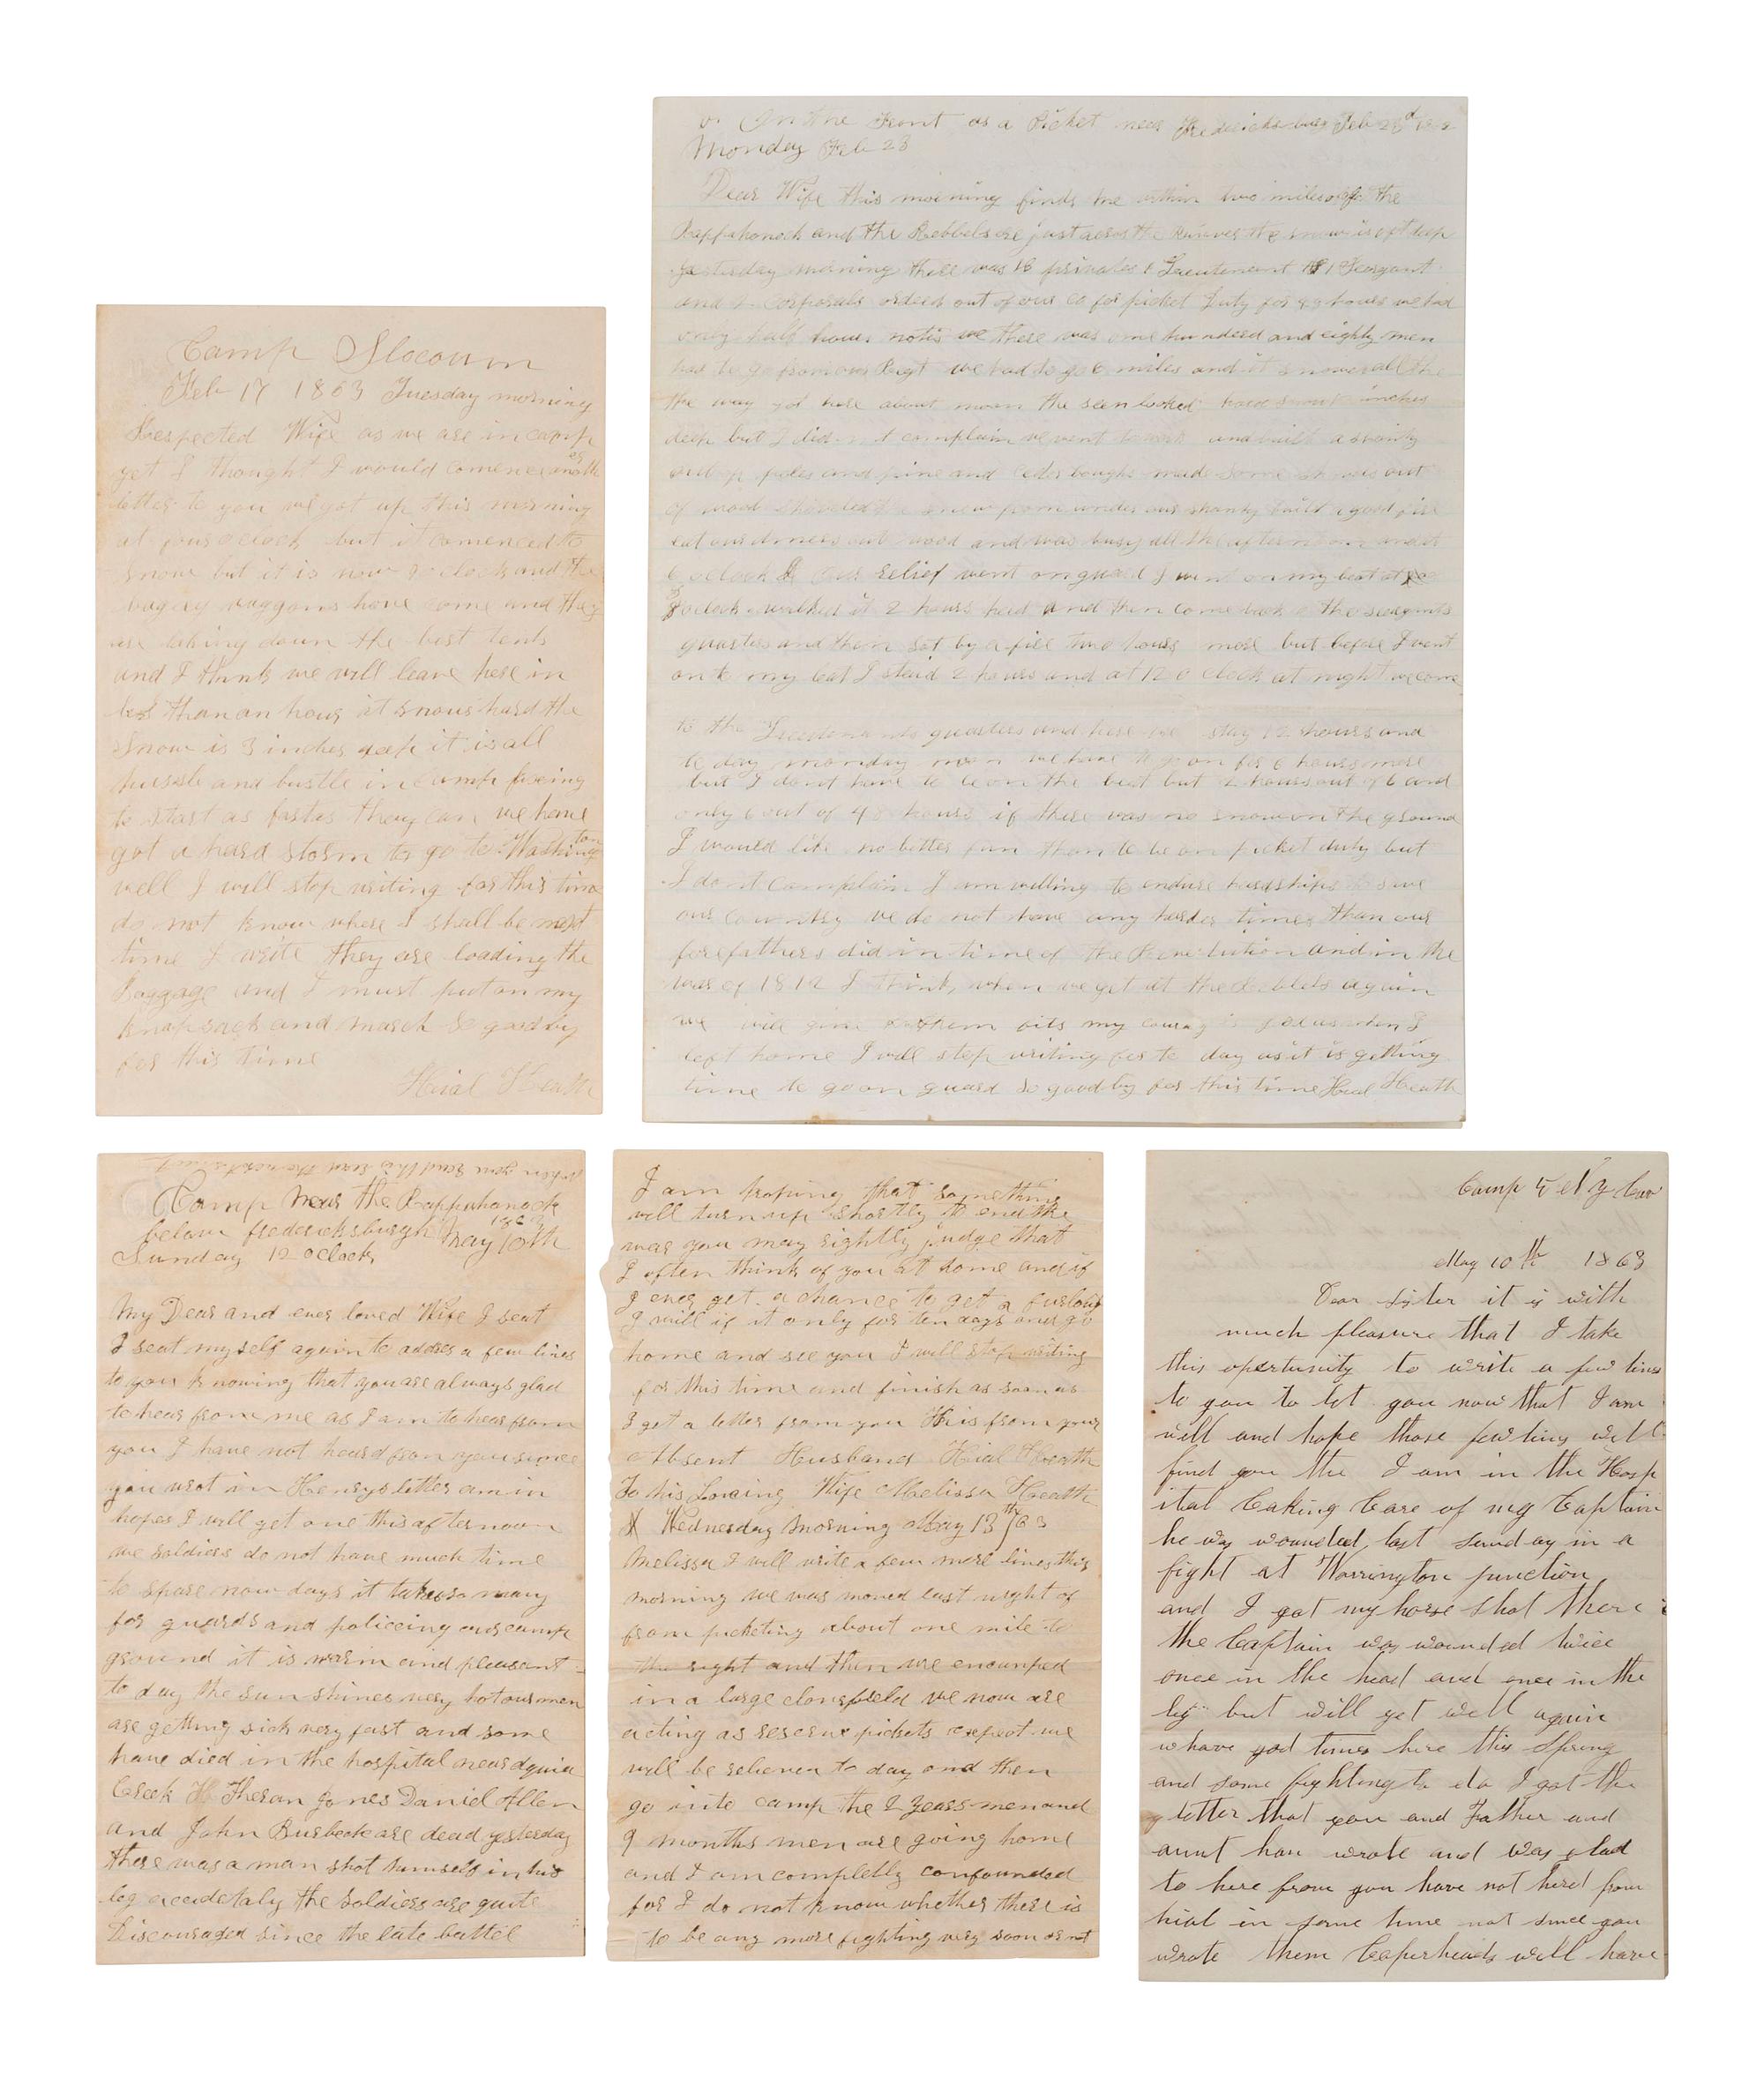 Camp Slocoum
Feb 17 1863 Tuesday morning
Respected Wife as we are in camp
yet I thought I would comence another
letter to you we got up this morning
at four oclock but it comenced to
snow but it is now 9 oclock and the
waggons have come and they
are taking down the best tents
and I think we will leave here in
less than an hour it snows hard the
snow is 3 inches deep it is all
hussle and bustle in camp fixing
to start as fast as they can we have
got a hard storm to go to Washington
well I will stop writing for this time
do not know where I shall be next
time I write they are loading the
Baggage and I must put on my
knapsack and march so good by
for this time
Hial Heath
On the Front as a Picket near Fredericksburg Feb
Monday Feb 23
Dear Wife this morning finds me within two miles of the
Rappahonock and the Rebbels are just across the the snow is deep
yesterday morning there was 18 privates 1 Lieutenant 1 Seargant
and 2 Corporals ordered out of our Co for picket Duty for 48 hours we had
only half hours notis there was one hundred and eighty men
had to go from our Regt we had to go 6 miles and it snowed all the
the way got here about noon the seen looked hard snow inches
deep but I did not complain we went to work and built a shanty
out of poles and pine and ceder boughs made some shovels out
of wood shoveled the snow from under our shanty built a good fire
eat our dinners cut wood and was busy all the afternoon and at
6 oclock relief went on guard I went on my beat at
8 oclock walked it 2 hours and then come back to the seargents
quarters and then set by a fire two hours more but before I went
on to my beat I staid 2 hours and at 12 o clock at night we come
to the quarters and here we stay 12 hours and
to day monday noon we have to go on for 6 hours more
but I dont have to be on the beat but 2 hours out of 6 and
only 6 out of 48 hours if there was no snow on the ground
I would like no better fun than to be on picket duty but
I dont complain I am willing to endure hardships to save
our country we do not have any harder times than our
forefathers did in time of the Revelution and in the
war of 1812 I think when we get at the Rebbels again
we will give them fits my courage is when I
left home I will stop writing for to day as it is getting
time to go on guard so good by for this time Hial Heath
when you send this send the
Camp Near the Rappahonock
below fredericksburgh May 10th 1863
Sunday 12 oclock
My Dear and ever loved Wife I seat
I seat myself again to address a few lines
to you knowing that you are always glad
to hear from me as I am to hear from
you I have not heard from you since
you wrot in Henrys letter am in
hopes I will get one this afternoon
we soldiers do not have much time
to spare now days it takes so many
for guards and policeing our camp
ground it is warm and pleasant
to day the sun shines very hot our men
are getting sick very fast and some
have died in the hospital near Aquia
Creek Theran Jones Daniel Allen
and John Burbeck are dead yesterday
there was a man shot himself in his
leg accidetaly the soldiers are quite
Discouraged since the late battel
I am hoping that something
will turn up shortly to end the
war you may rightly judge that
I often think of you at home and if
I ever get a chance to get a furlough
I will if it only for ten days and go
home and see you I will stop writing
for this time and finish as soon as
I get a letter from you This from your
Absent Husband Hial Heath
To his Loving Wife Melissa Heath
X Wednesday Morning May 13th/63
Melissa I will write a few more lines this
morning we was moved last night of
from picketing about one mile to
the right and then we encamped
in a large cloverfield we now are
acting as reserve pickets expect we
will be relieved to day and then
go into camp the 2 years men and
9 months men are going home
and I am completly confounded
for I do not know whether there is
to be any more fighting very soon or not
Camp 5 N y Cav
May 10th 1863
Dear sister it is with
much pleasure that I take
this opertunity to write a few lines
to you to let you now that I am
well and hope those few lines will
find you the I am in the Hosp
ital taking Care of my Captain
he was wounded last sunday in a
fight at Warrington junction
and I got my horse shot there
the Captain was wounded twice
once in the head and once in the
leg but will get well again
whave god times here this Spring
and some fighting to do I got the
letter that you and Father and
aunt han wrote and was glad
to here from you have not herd from
hial in some time not since you
wrote them Coperheads will have